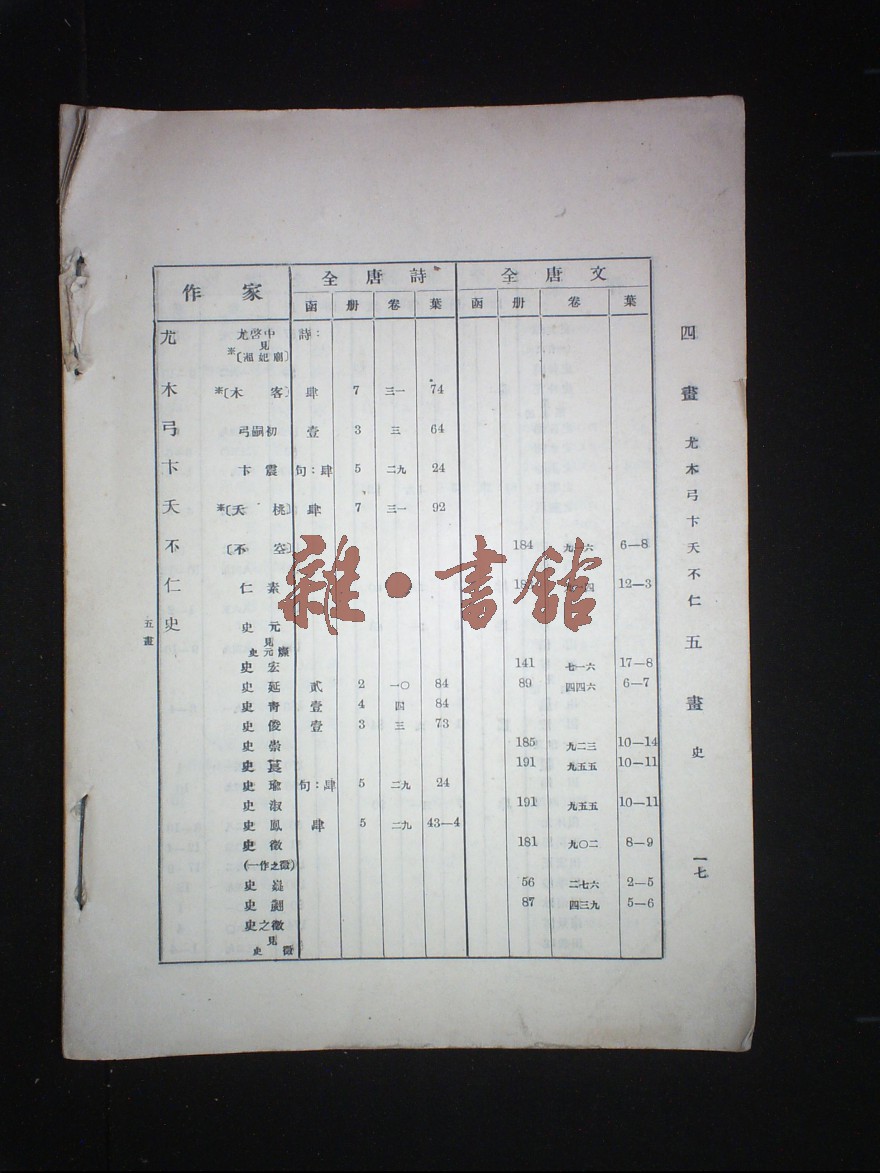 作家 全唐詩 全唐文
函 册 卷 葉 函 册 卷 葉
尤 尤啓中 詩：
見
※〔湘妃廟〕
木 ※〔木客〕 肆 7 三一 74
弓 弓嗣初 壹 3 三 64
卞 卞震 句：肆 5 二九 24
夭 ※〔夭桃〕 肆 7 三一 92
不 〔不空〕 184 九一六 6—8
仁 仁素 九一四 12—3
五畫
史 史元
見
史元
史宏 141 七一六 17—8
史延 貳 2 一〇 84 89 四四六 6—7
史青 壹 4 四 84
史俊 壹 3 三 73
史崇 185 九二三 10—14
史 191 九五五 10—11
史瑜 句：肆 5 二九 24
史淑 191 九五五 10—11
史鳳 肆 5 二九 43—4
史徵 181 九〇二 8—9
(一作之徵)
史 56 二七六 2—5
史翽 87 四三九 5—6
史之徵
見
史徵
四畫 尤木弓卞夭不仁 五畫 史
一七
雜·書館